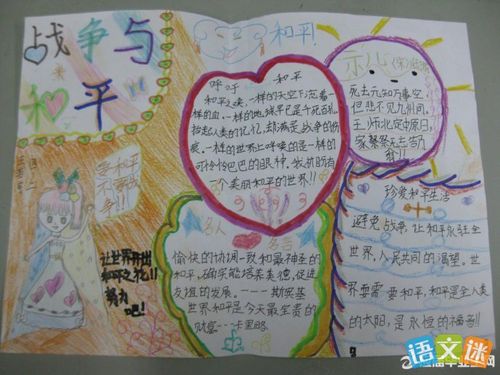 战争与
和平
和平!
呼吁 和平
和平之美,一样的天空下,流着一
样的血。一样的地球早已是千疮百孔,
拾起人类的记忆,却满是战争的伤
痕。一样的世界上呼唤的是一样的
可怜巴巴的眼神。我祈盼有
一个美丽和平的世界!!
示儿(宋)陆游
死去元知万事空
但悲不见九州同。
王师北定中原日,
家祭无忘告乃
翁!!
要和平
不要战
争!!!
让世界开出
和平之花!!
努力
吧!
名人 名言
愉快的协调一致和最神圣的
和平,确实能培养美德,促进
友谊的发展。----斯宾塞
世界和平是今天最宝贵的
财富--卡里略
珍爱和平生活
避免战争,让和平永驻全
世界,人民共同的渴望。世
界需要和平,和平是全人类
的太阳,是永恒的福音!!
语文迷